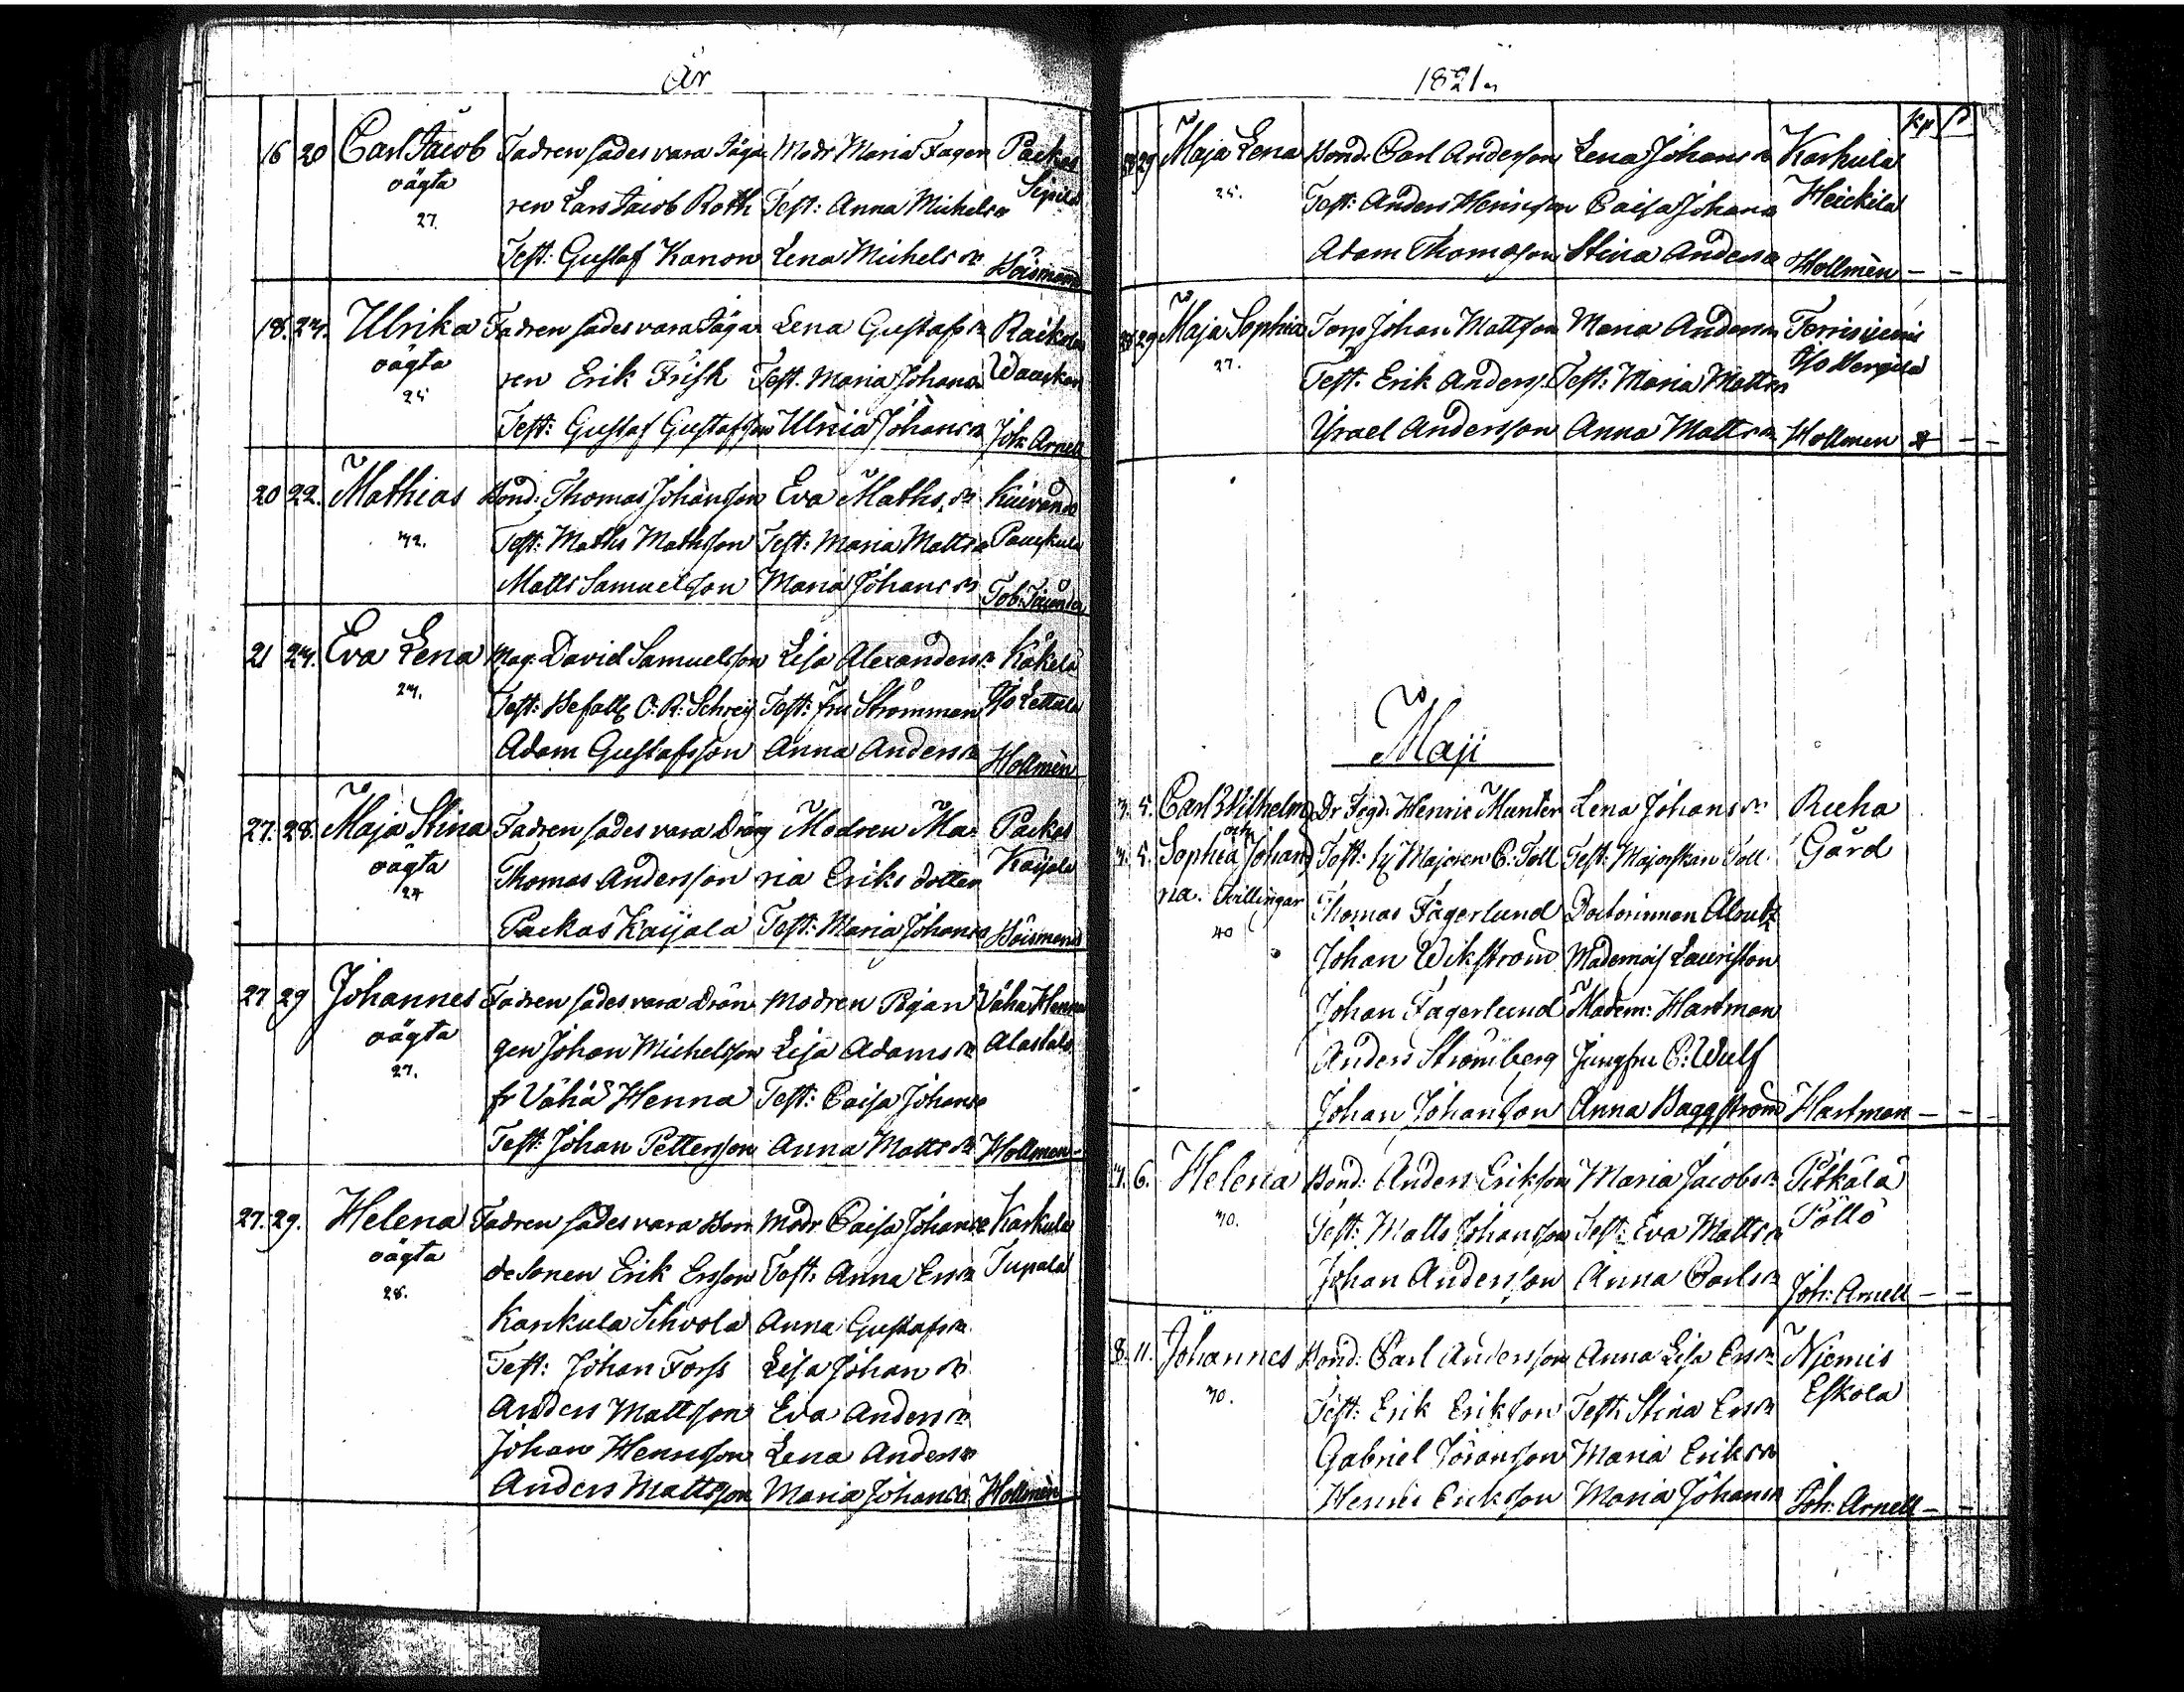 År
16 20 Carl Jacob Fadren sades vara Jäga Modr Maria Fagers Packas
oägta ren Lars Jacob Roth Test: Anna Michels dr Sipilä
27. Test: Gustaf Kanon Lena Michels dr Höismond
18. 24. Ulrika Fadren sades vara Jäga Lena Gustafs dr Raikola
oägta ren Erik Frisk Test. Maria Johans dr
25 Test: Gustaf Gustafsson Ulrica Johans dr Joh: Arnell
20 22. Mathias Bond: Thomas Johansson Eva Maths dr
42. Test: Maths Mathsson Test: Maria Matts dr
Matts Samuelsson Maria Johans dr
21 24. Eva Lena Mag: David Samuelsson Lisa Alexanders dr Käkelä
24. Test: Befallg C: R: Schrey Test: fru Strömmen Lettala
Adam Gustafsson Anna Anders dr Hollmèn
27. 28. Maja Stina Fadren sades vara Dräng Modren Ma- Packas
oägta Thomas Andersson ria Eriks dotter Kaijala
24 Packas Kaijala Test: Maria Johans dr Höismond
27 29 Johannes Fadren sades vara drän- Modren Pigan Vähä Henna
oägta gen Johan Michelsson Lisa Adams dr Alastalo
27. fr Vähä Henna Test: Caisa Johans dr
Test: Johan Pettersson Anna Matts dr Hollmen -
27. 29. Helena Fadren sades vara Bon Modr Caisa Johans dr Karkula
oägta desonen Erik Ersson Test: Anna Ers dr Tupala
28. Karkula Sihvola Anna Gustafs dr
Test: Johan Forss Lisa Johan dr
Anders Mattsson Eva Anders dr
Johan Henricsson Lena Anders dr
Anders Mattsson Maria Johans dr Hollmèn
1821.
29 Maja Lena Bond: Carl Andersson Lena Johans dr Karkula
25. Test: Anders Henricsson Caisa Johans dr Heickilä
Adam Thomasson Stina Anders dr Hollmèn - -
29 Maja Sophia Torp Johan Mattsson Maria Anders dr
27. Test: Erik Anderss. Test: Maria Matts dr
Israel Andersson Anna Matts dr Hollmen - -
Maji
4. 5. Carl Wilhelm Dr Fogd: Henric Munter Lena Johans dr Ruha
och
4. 5. Sophia Johan Test: Hr Majoren C: Toll Test: Majorskan Toll Gård
na. Tvillingar Thomas Fagerlund Doctorinnan
40 Johan Wikström Mademois Lauriston
Johan Fagerlund Madem: Hartman
Anders Strömberg Jungfru C: Wulf
Johan Johansson Anna Baggström Hartman - -
4. 6. Helena Bond: Anders Eriksson Maria Jacobs dr Pitkälä
40. Test: Matts Johansson Test: Eva Matts dr Pöllö
Johan Andersson Anna Carls dr Joh: Arnell - -
8. 11. Johannes Bond: Carl Andersson Anna Lisa Ers dr Njemis
40. Test: Erik Eriksson Test: Stina Ers dr Eskola
Gabriel Göransson Maria Eriks dr
Henric Ericksson Maria Johans dr Joh: Arnell - -